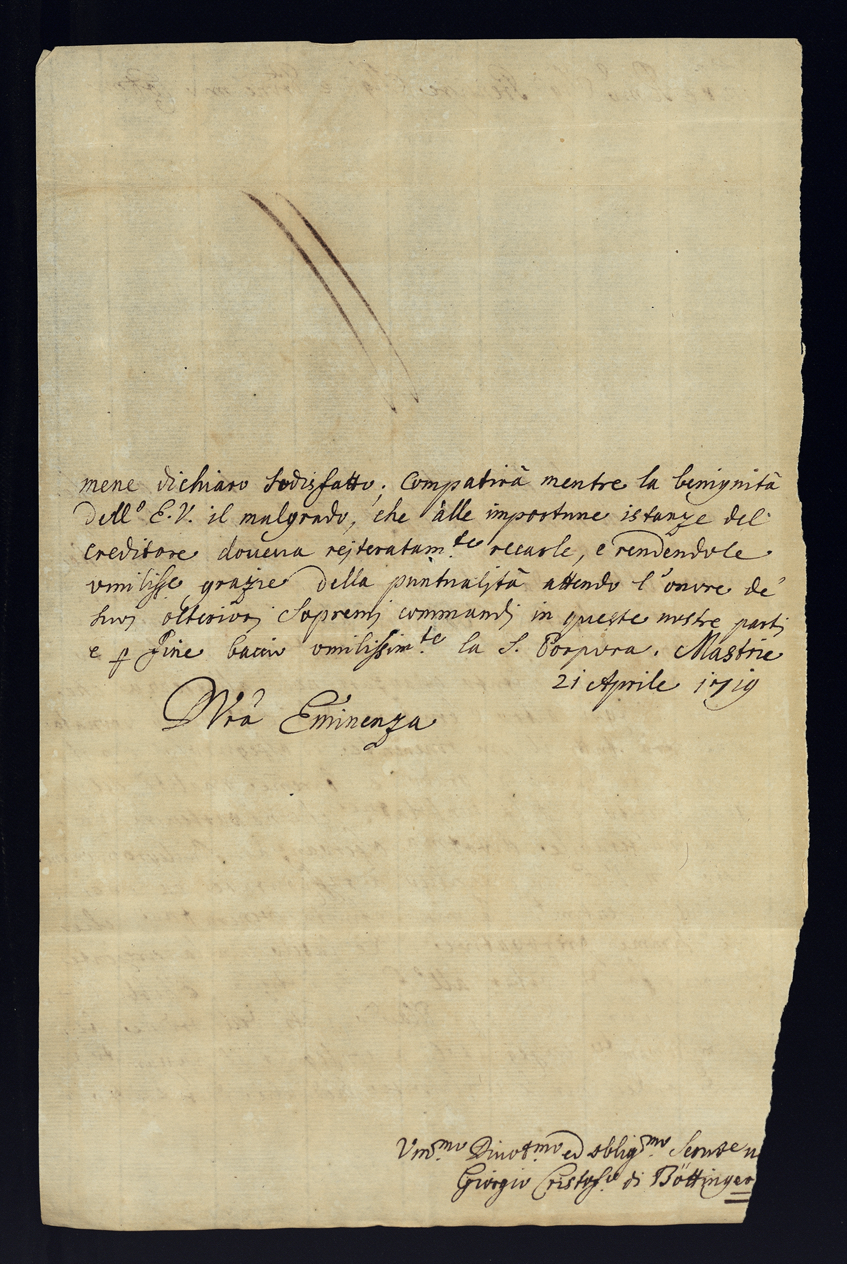 mene dichiaro sodisfatto; Compatirà mentre la benignità
dell'o E.V. il malgrado, che alle importune istanze del
creditore doueua rejteratam.te recarle, e rendendole
umilisse grazie della puntualità attendo l'onore de'
suoj olteriorj Sopremj commandj in queste nostre partj
e p fine baccio omilissim.te la S. Porpora. Mastric
21 Aprile 1719
D Vra Eminenza
Vm.mo Diuot.mo ed oblig.mo Seruse
Giorgio Cristof.o di Böttinger